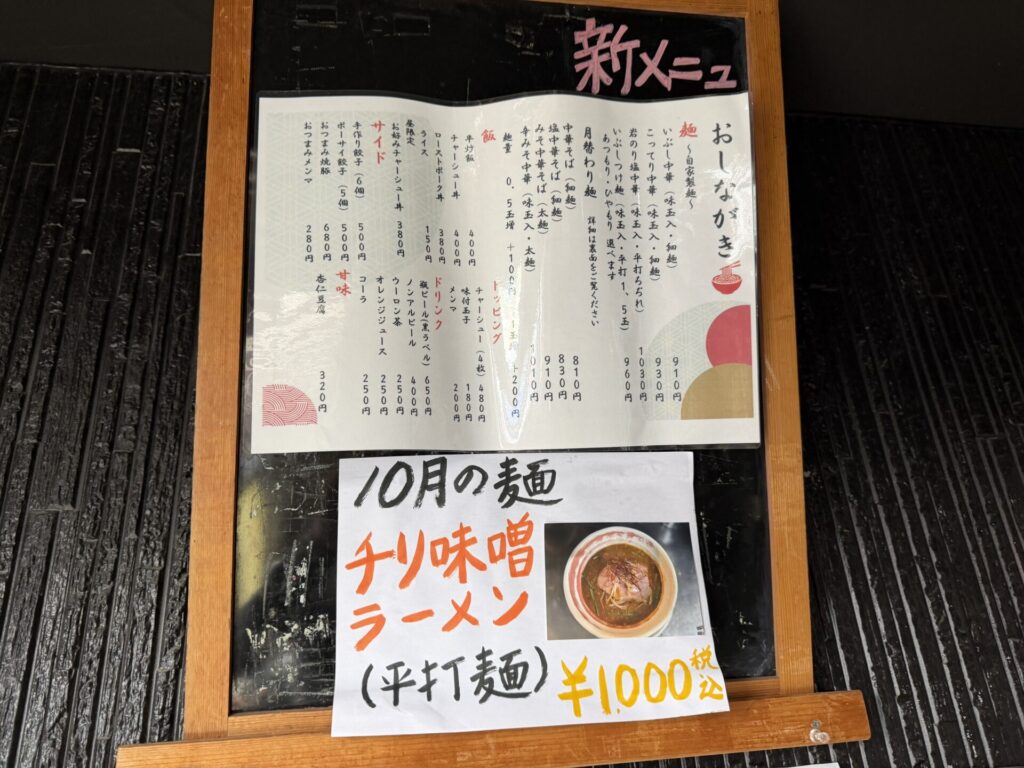 新メニュ
おしながき
麺 ～自家製麺～
いぶし中華（味玉入・細麺） 910円
こってり中華（味玉入・細麺） 930円
岩のり塩中華（味玉入・平打ちぢれ） 1030円
いぶしつけ麺（味玉入・平打1、5玉） 960円
あつもり・ひやもり 選べます
月替わり麺 詳細は裏面をご覧ください
中華そば（細麺） 810円
塩中華そば（細麺） 830円
みそ中華そば（太麺） 910円
辛みそ中華そば（味玉入・太麺） 1010円
麺量 0、5玉増 +100円 玉増 +200円
飯
半炒飯 400円
チャーシュー丼 400円
ローストポーク丼 380円
ライス 150円
昼限定
お好みチャーシュー丼 380円
サイド
手作り餃子（6個） 500円
ポーサイ餃子（5個） 500円
おつまみ焼豚 680円
おつまみメンマ 280円
トッピング
チャーシュー（4枚） 480円
味付玉子 180円
メンマ 200円
ドリンク
瓶ビール（黒ラベル） 650円
ノンアルビール 400円
ウーロン茶 250円
オレンジジュース 250円
コーラ 250円
甘味
杏仁豆腐 320円
10月の麺
チリ味噌
ラーメン
(平打麺)
¥1,000税込